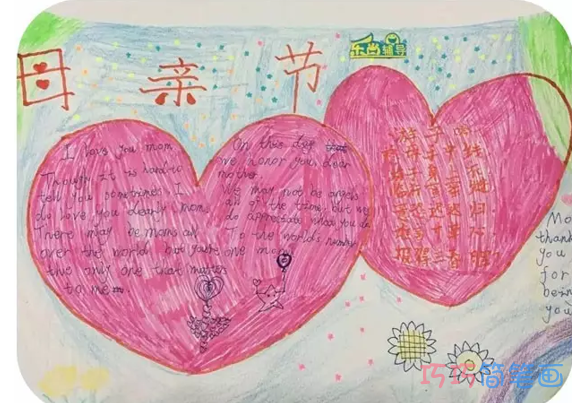 母亲节
乐尚辅导
I love you mom,
Though it is hard to
tell you sometimes I
do love you dearly mom.
There may be moms all
over the world but you're
the only one that matters
to me.
On this day
we honor you dear
mother.
We may not be angels
all of the time, but we
do appreciate what you do
To the world's number
one mom
游子吟
慈母手中线
游子身上衣
临行密密缝
意恐迟迟归
谁言寸草心
报得三春晖
Mo
thank
you
for
being
you
巧巧简笔画